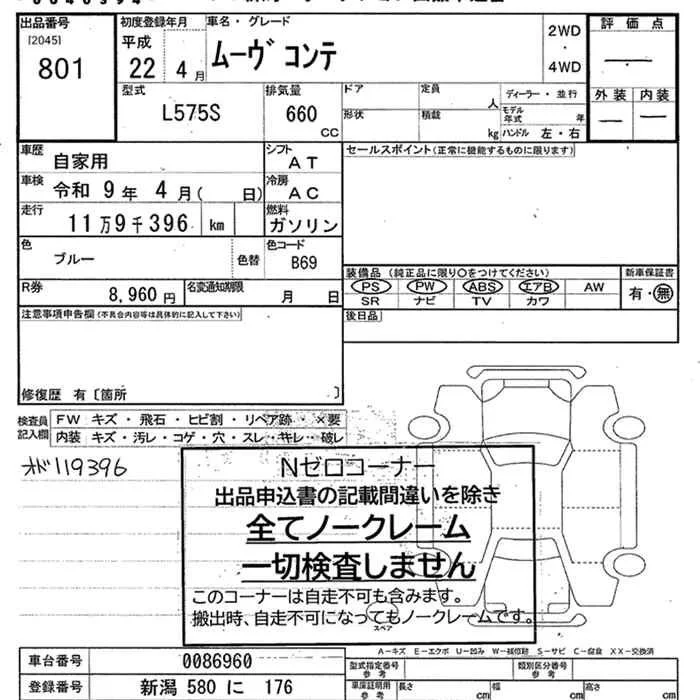 出品番号
[2045]
801
初度登録年月
平成
22 4月
車名・グレード
ムーヴ コンテ
2WD
・
4WD
評価点
外装 内装
型式
L575S
排気量
660
CC
ドア
定員
人
ディーラー・並行
形状
積載
kg
モデル年式
年
ハンドル 左・右
車歴
自家用
シフト
AT
セールスポイント(正常に機能するものに限ります)
車検
令和 9年 4月( 日)
冷房
AC
走行
11万9千396 km
燃料
ガソリン
色
ブルー
色替
色コード
B69
装備品 (純正品に限り○をつけてください)
新車保証書
PS PW ABS エアB AW
SR ナビ TV カワ
有・無
R券
8,960円
名変通知期限
月 日
注意事項申告欄(不具合内容等は具体的に記入して下さい)
後日品
修復歴 有〔箇所 〕
検査員記入欄
FW キズ・飛石・ヒビ割・リペア跡・×要
内装 キズ・汚レ・コゲ・穴・スレ・キレ・破レ
オド119396
Nゼロコーナー
出品申込書の記載間違いを除き
全てノークレーム
一切検査しません
このコーナーは自走不可も含みます。
搬出時、自走不可になってもノークレームです。
スペア
A-キズ E-エクボ U-凹み W-補修跡 S-サビ C-腐食 XX-交換済
車台番号
0086960
型式指定番号
参考
類別区分番号
参考
登録番号
新潟 580 に 176
車庫証明用
参考
長さ
cm
幅
cm
高さ
cm